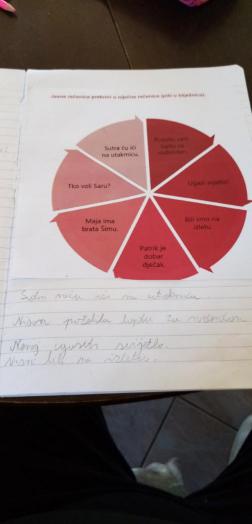 Jesne rečenice pretvori u niječne rečenice (piši u bilježnicu).
Sutra ću ići
na utakmicu.
Ugasi svjetlo!
Bili smo na
izletu.
Patrik je
dobar
dječak.
Maja ima
brata Šimu.
Tko voli Saru?
Sutra neću ići na utakmicu
Nisam loptu za
Nemoj ugasiti svijetlo.
Nismo bili na izletu.